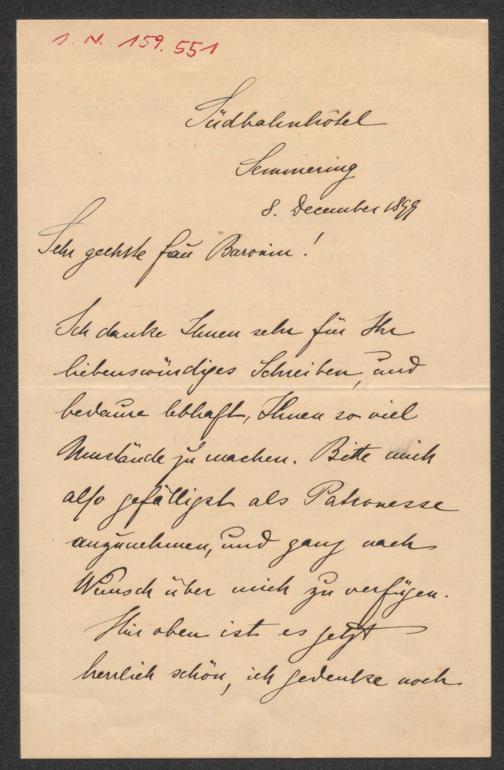 I. N. 159.551
Südbahnhôtel
Semmering
8. December 1899
Sehr geehrte Frau Baronin!
Ich danke Ihnen sehr für Ihr
liebenswürdiges Schreiben, und
bedaure lebhaft, Ihnen so viel
Umstände zu machen. Bitte mich
also gefälligst als Patronesse
anzunehmen, und ganz nach
Wunsch über mich zu verfügen.
Hier oben ist es jetzt
herrlich schön, ich gedenke noch